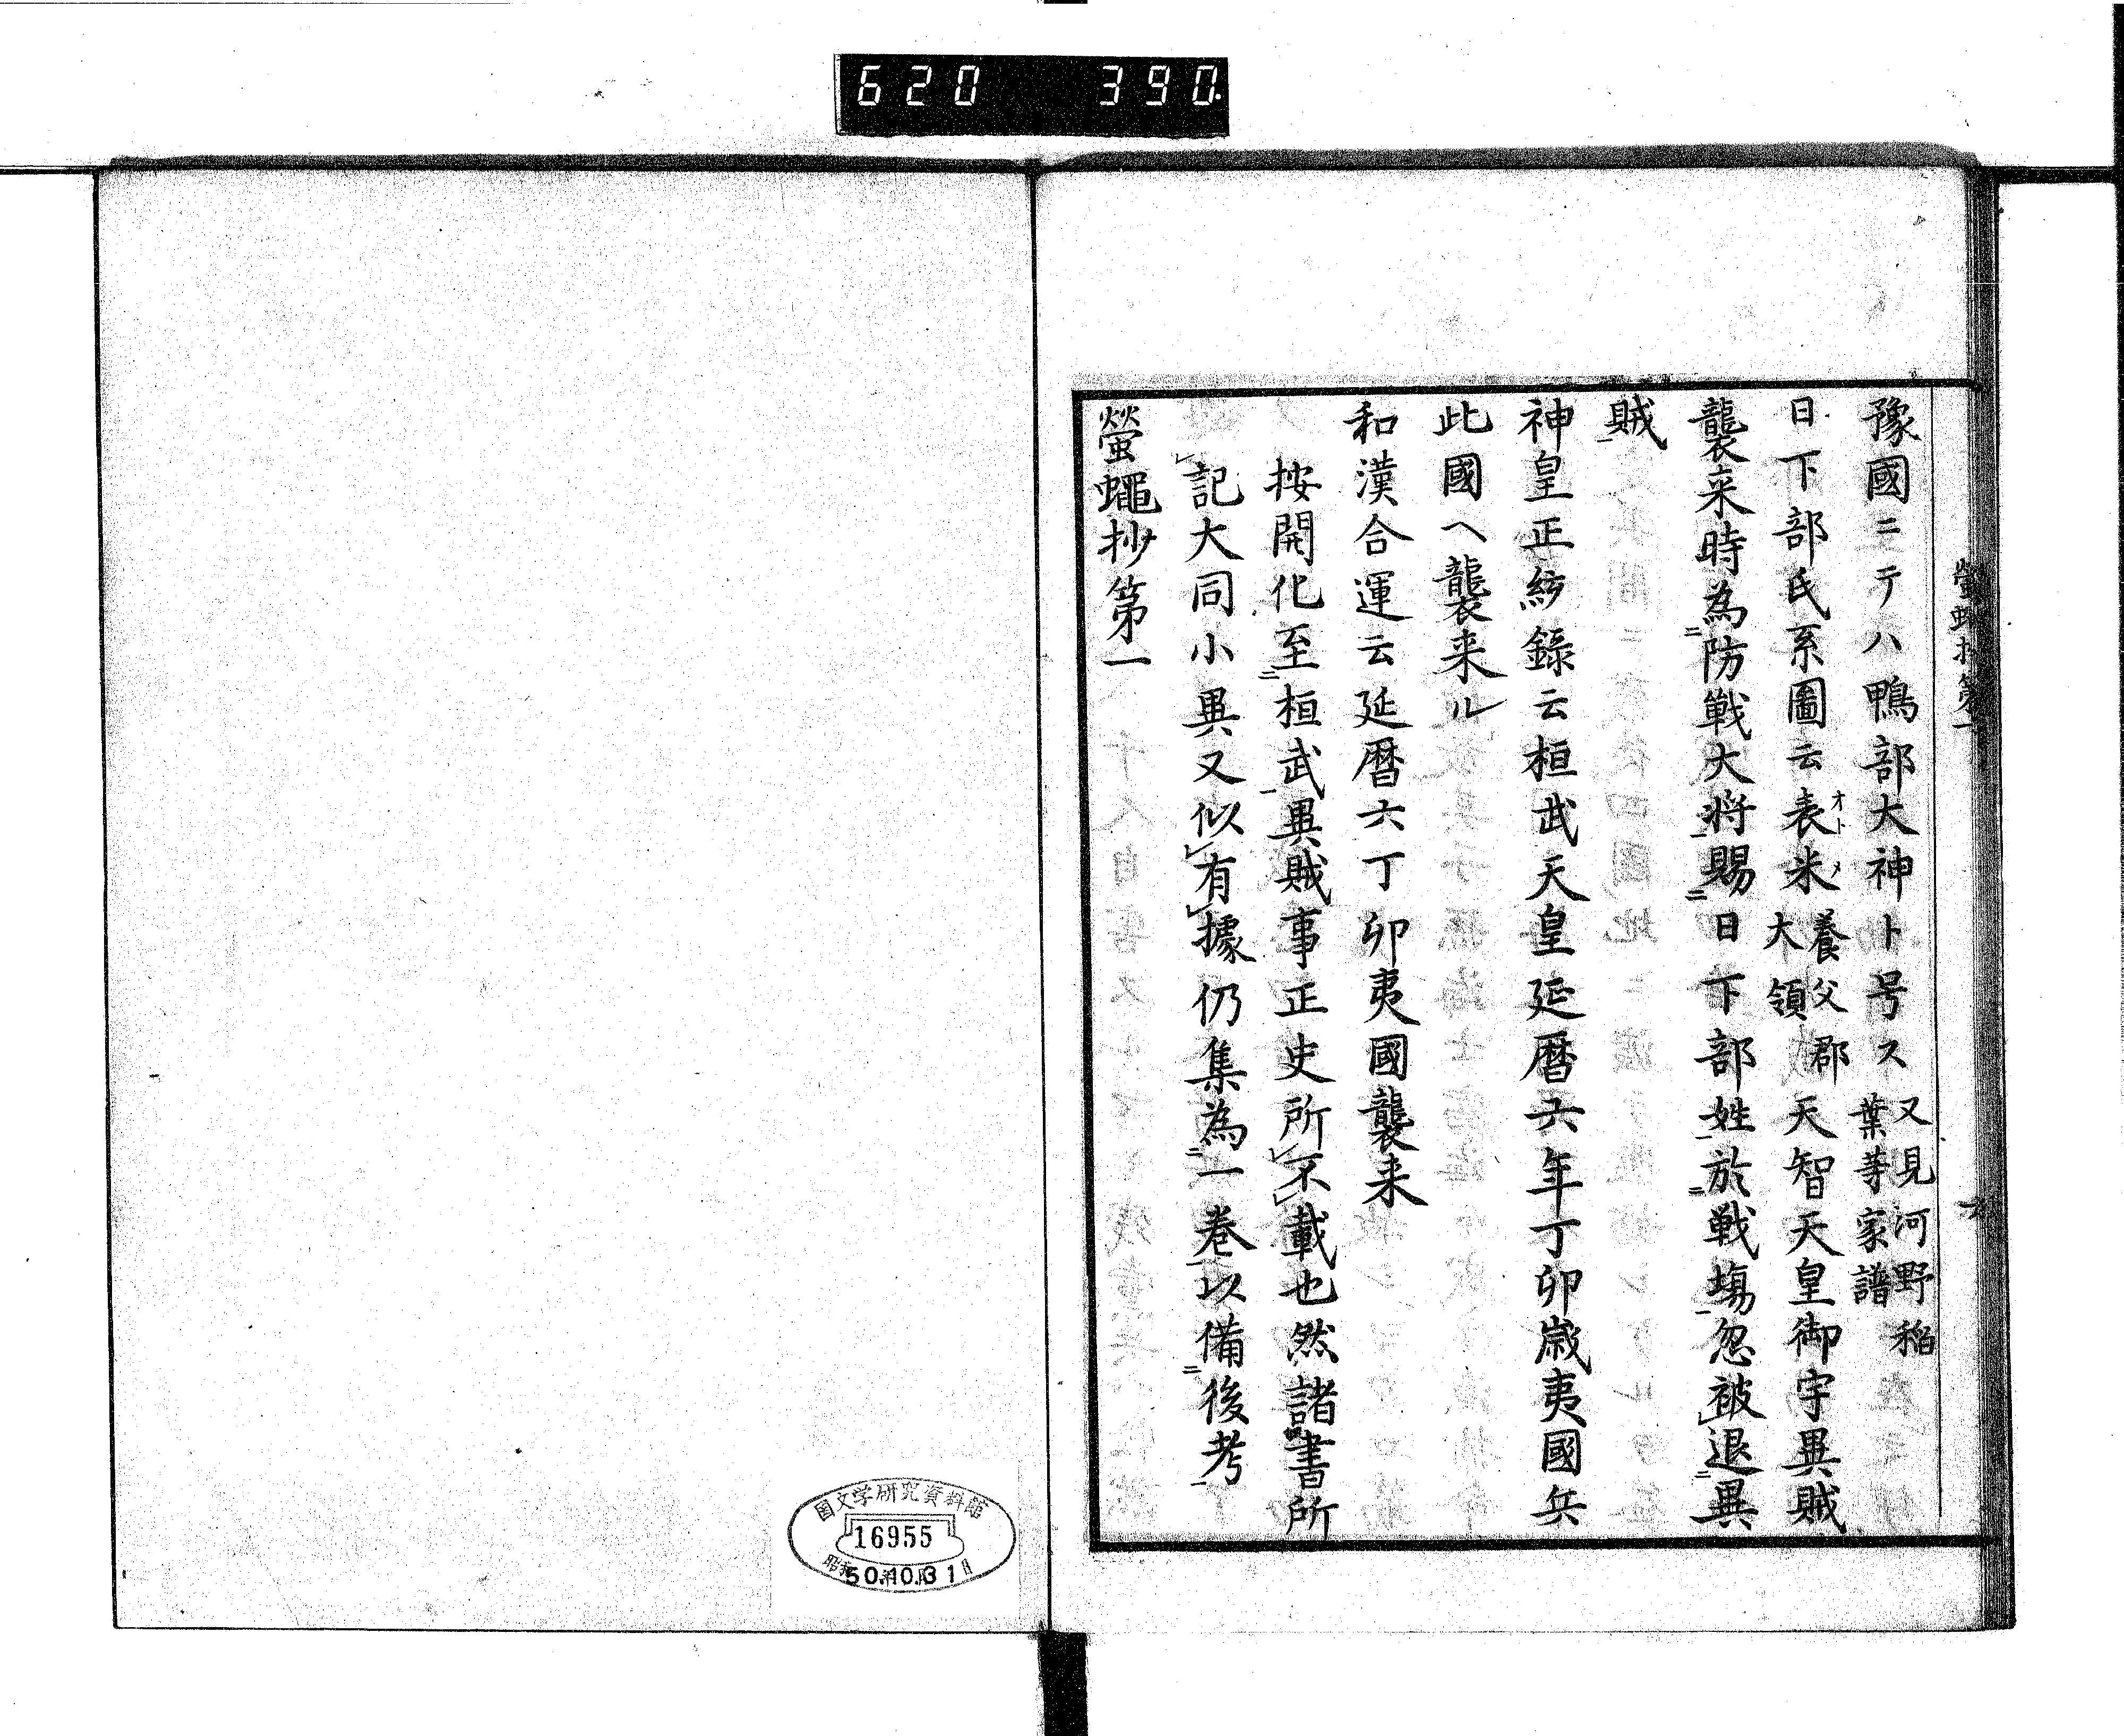 620 390.
螢蠅抄第一
豫國ニテハ鴨部大神ト号ス又見河野稲葉等家譜
日下部氏系圖云表米オトメ養父郡大領天智天皇御宇異賊
襲来時為二防戰大将一賜二日下部姓一於二戦場一忽被レ退二異
賊一
神皇正綂錄云桓武天皇延暦六年丁卯歳夷國兵
此國ヘ襲来ル
和漢合運云延暦六丁卯夷國襲来
按開化至二桓武一異賊事正史所レ不レ載也然諸書所
レ記大同小異又似レ有レ據仍集為二一巻一以備二後考一
螢蠅抄第一
国文学研究資料館
16955
昭和
50.10.31